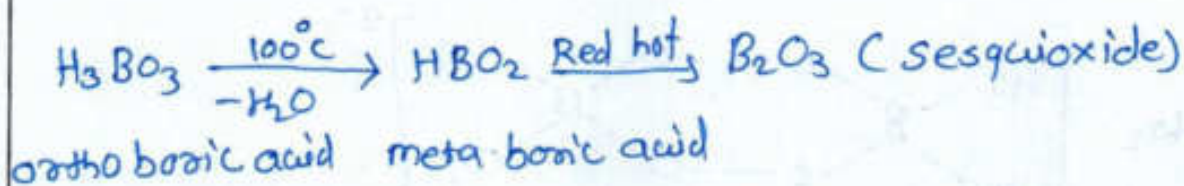 H₃BO₃ —100°C/−H₂O→ HBO₂ —Red hot→ B₂O₃ (sesquioxide)
ortho boric acid meta-boric acid